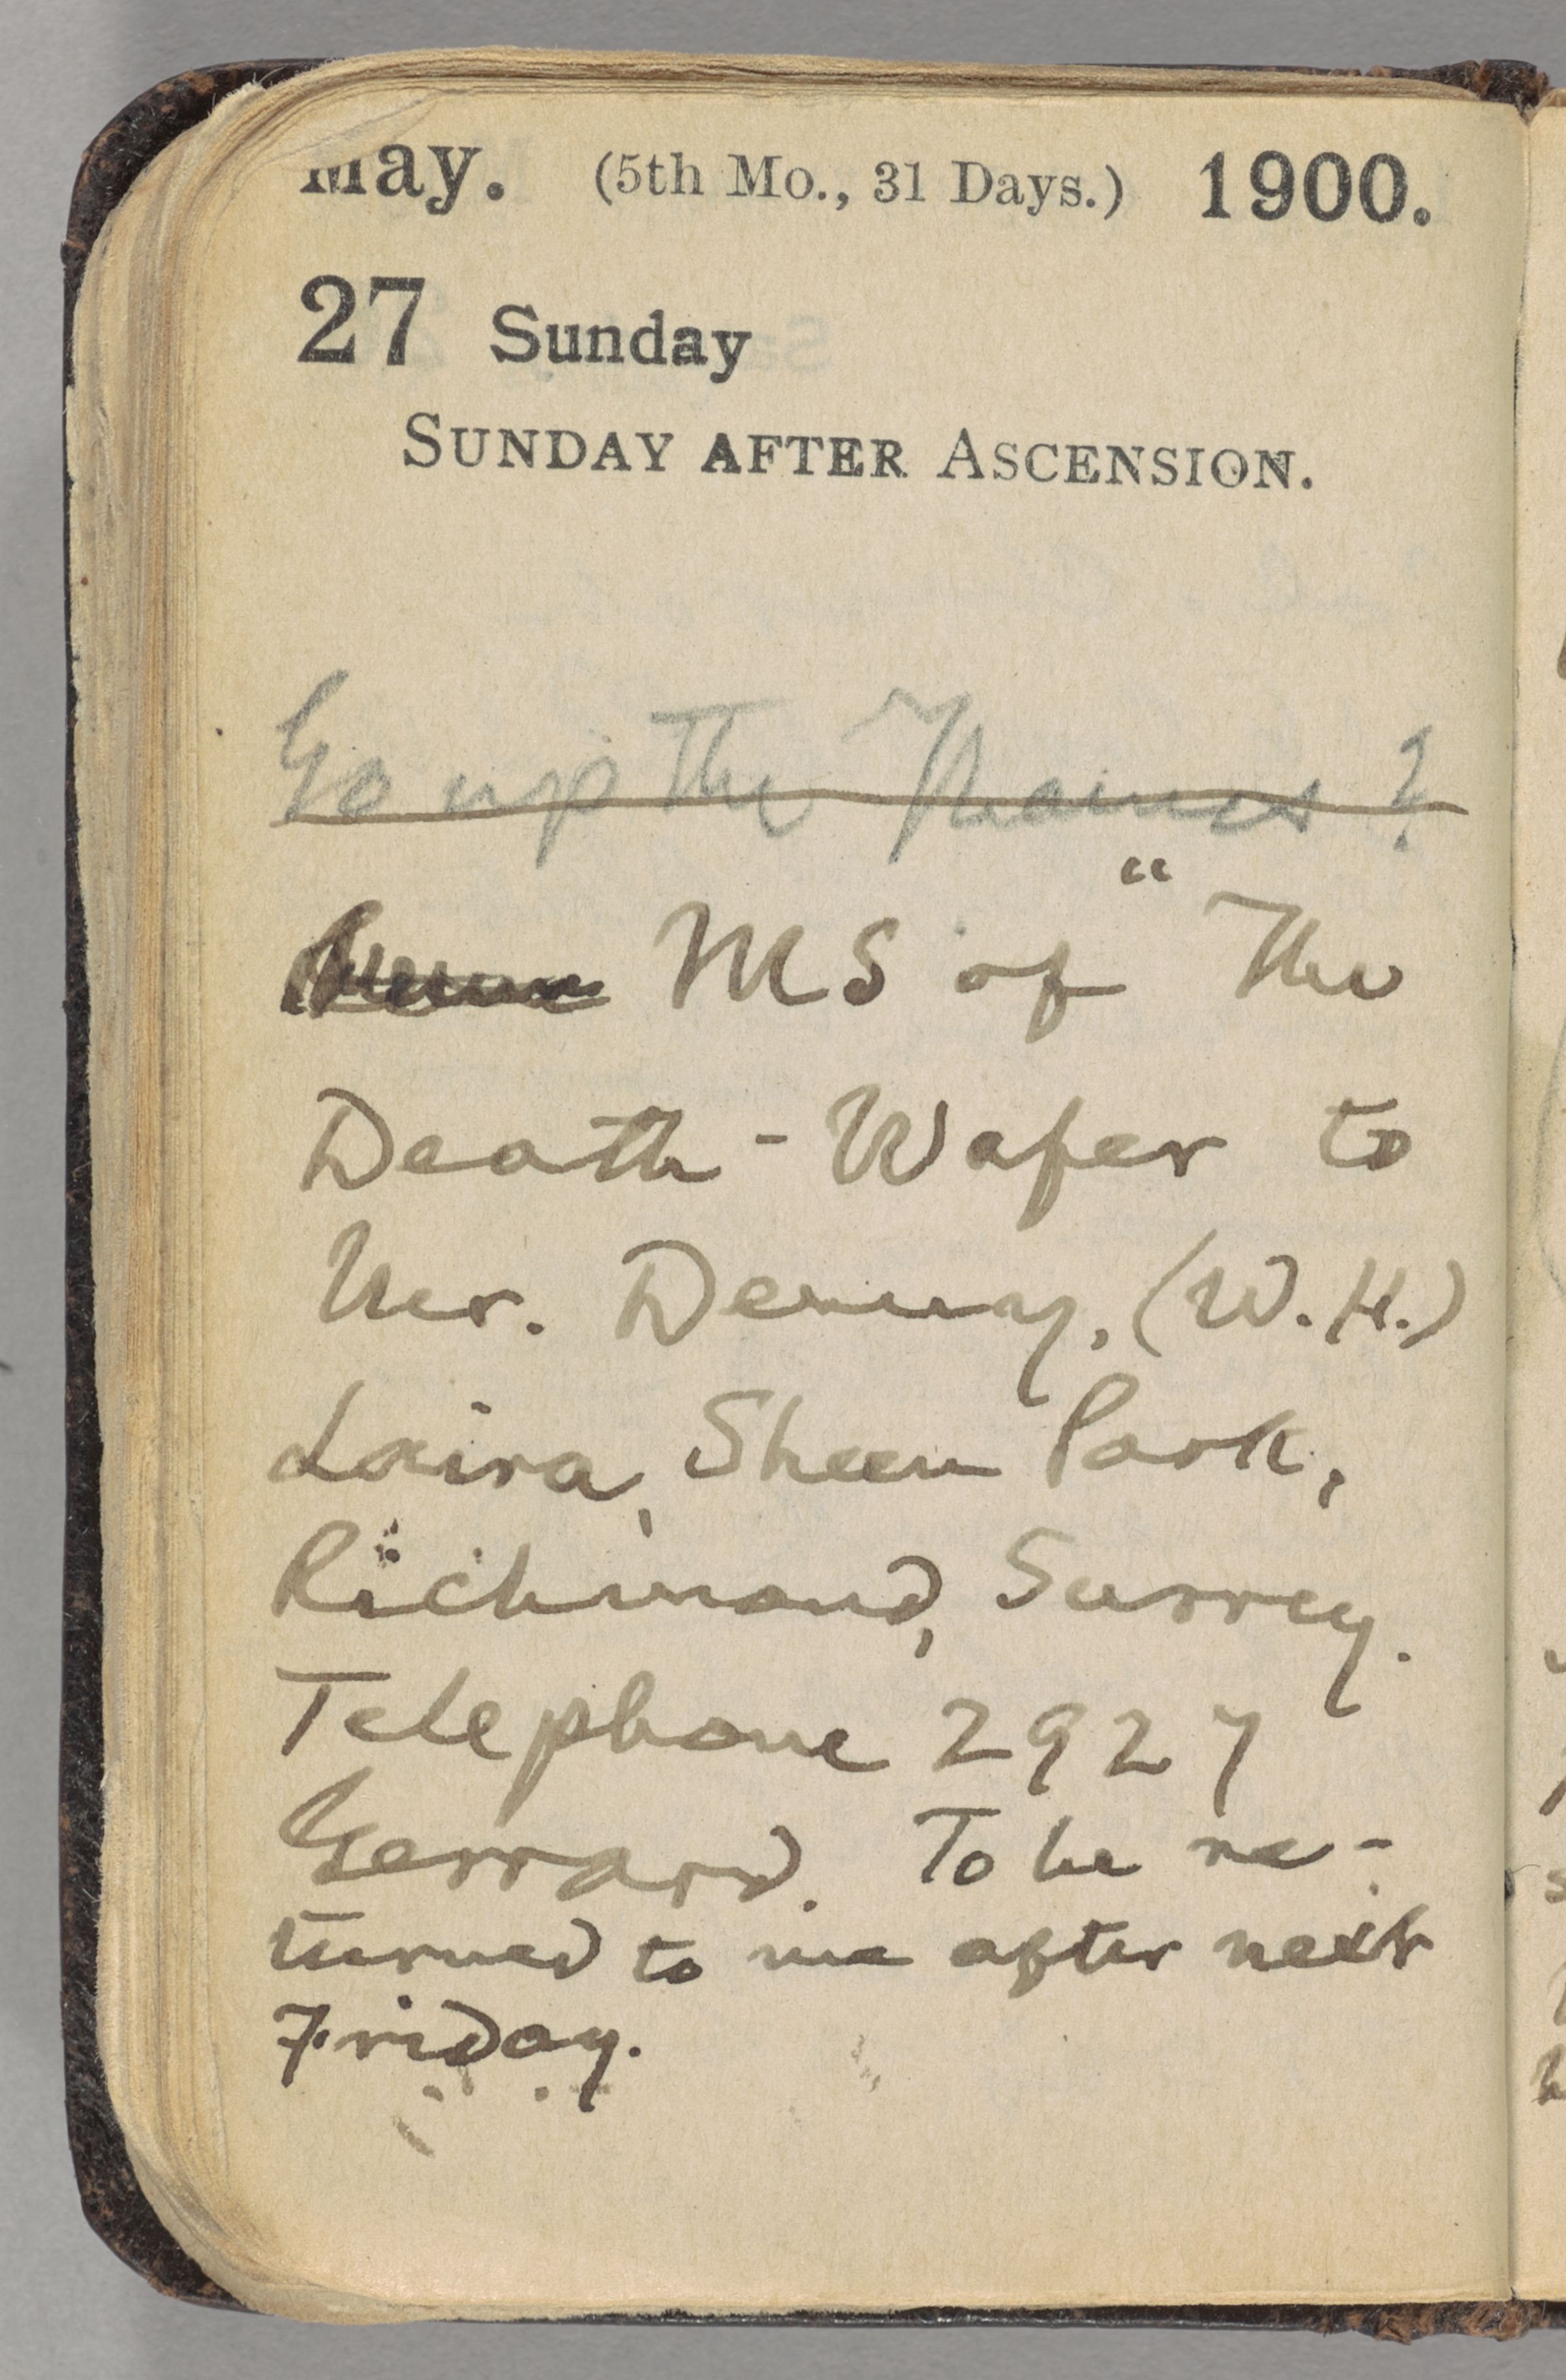 May. (5th Mo., 31 Days.) 1900.
27 Sunday
SUNDAY AFTER ASCENSION.
Go up the Thames?
MS of "The
Death-Wafer to
Mr. Denny, (W.H.)
Laira, Sheen Park,
Richmond, Surrey.
Telephone 2927
Gerrard. To be re-
turned to me after next
Friday.